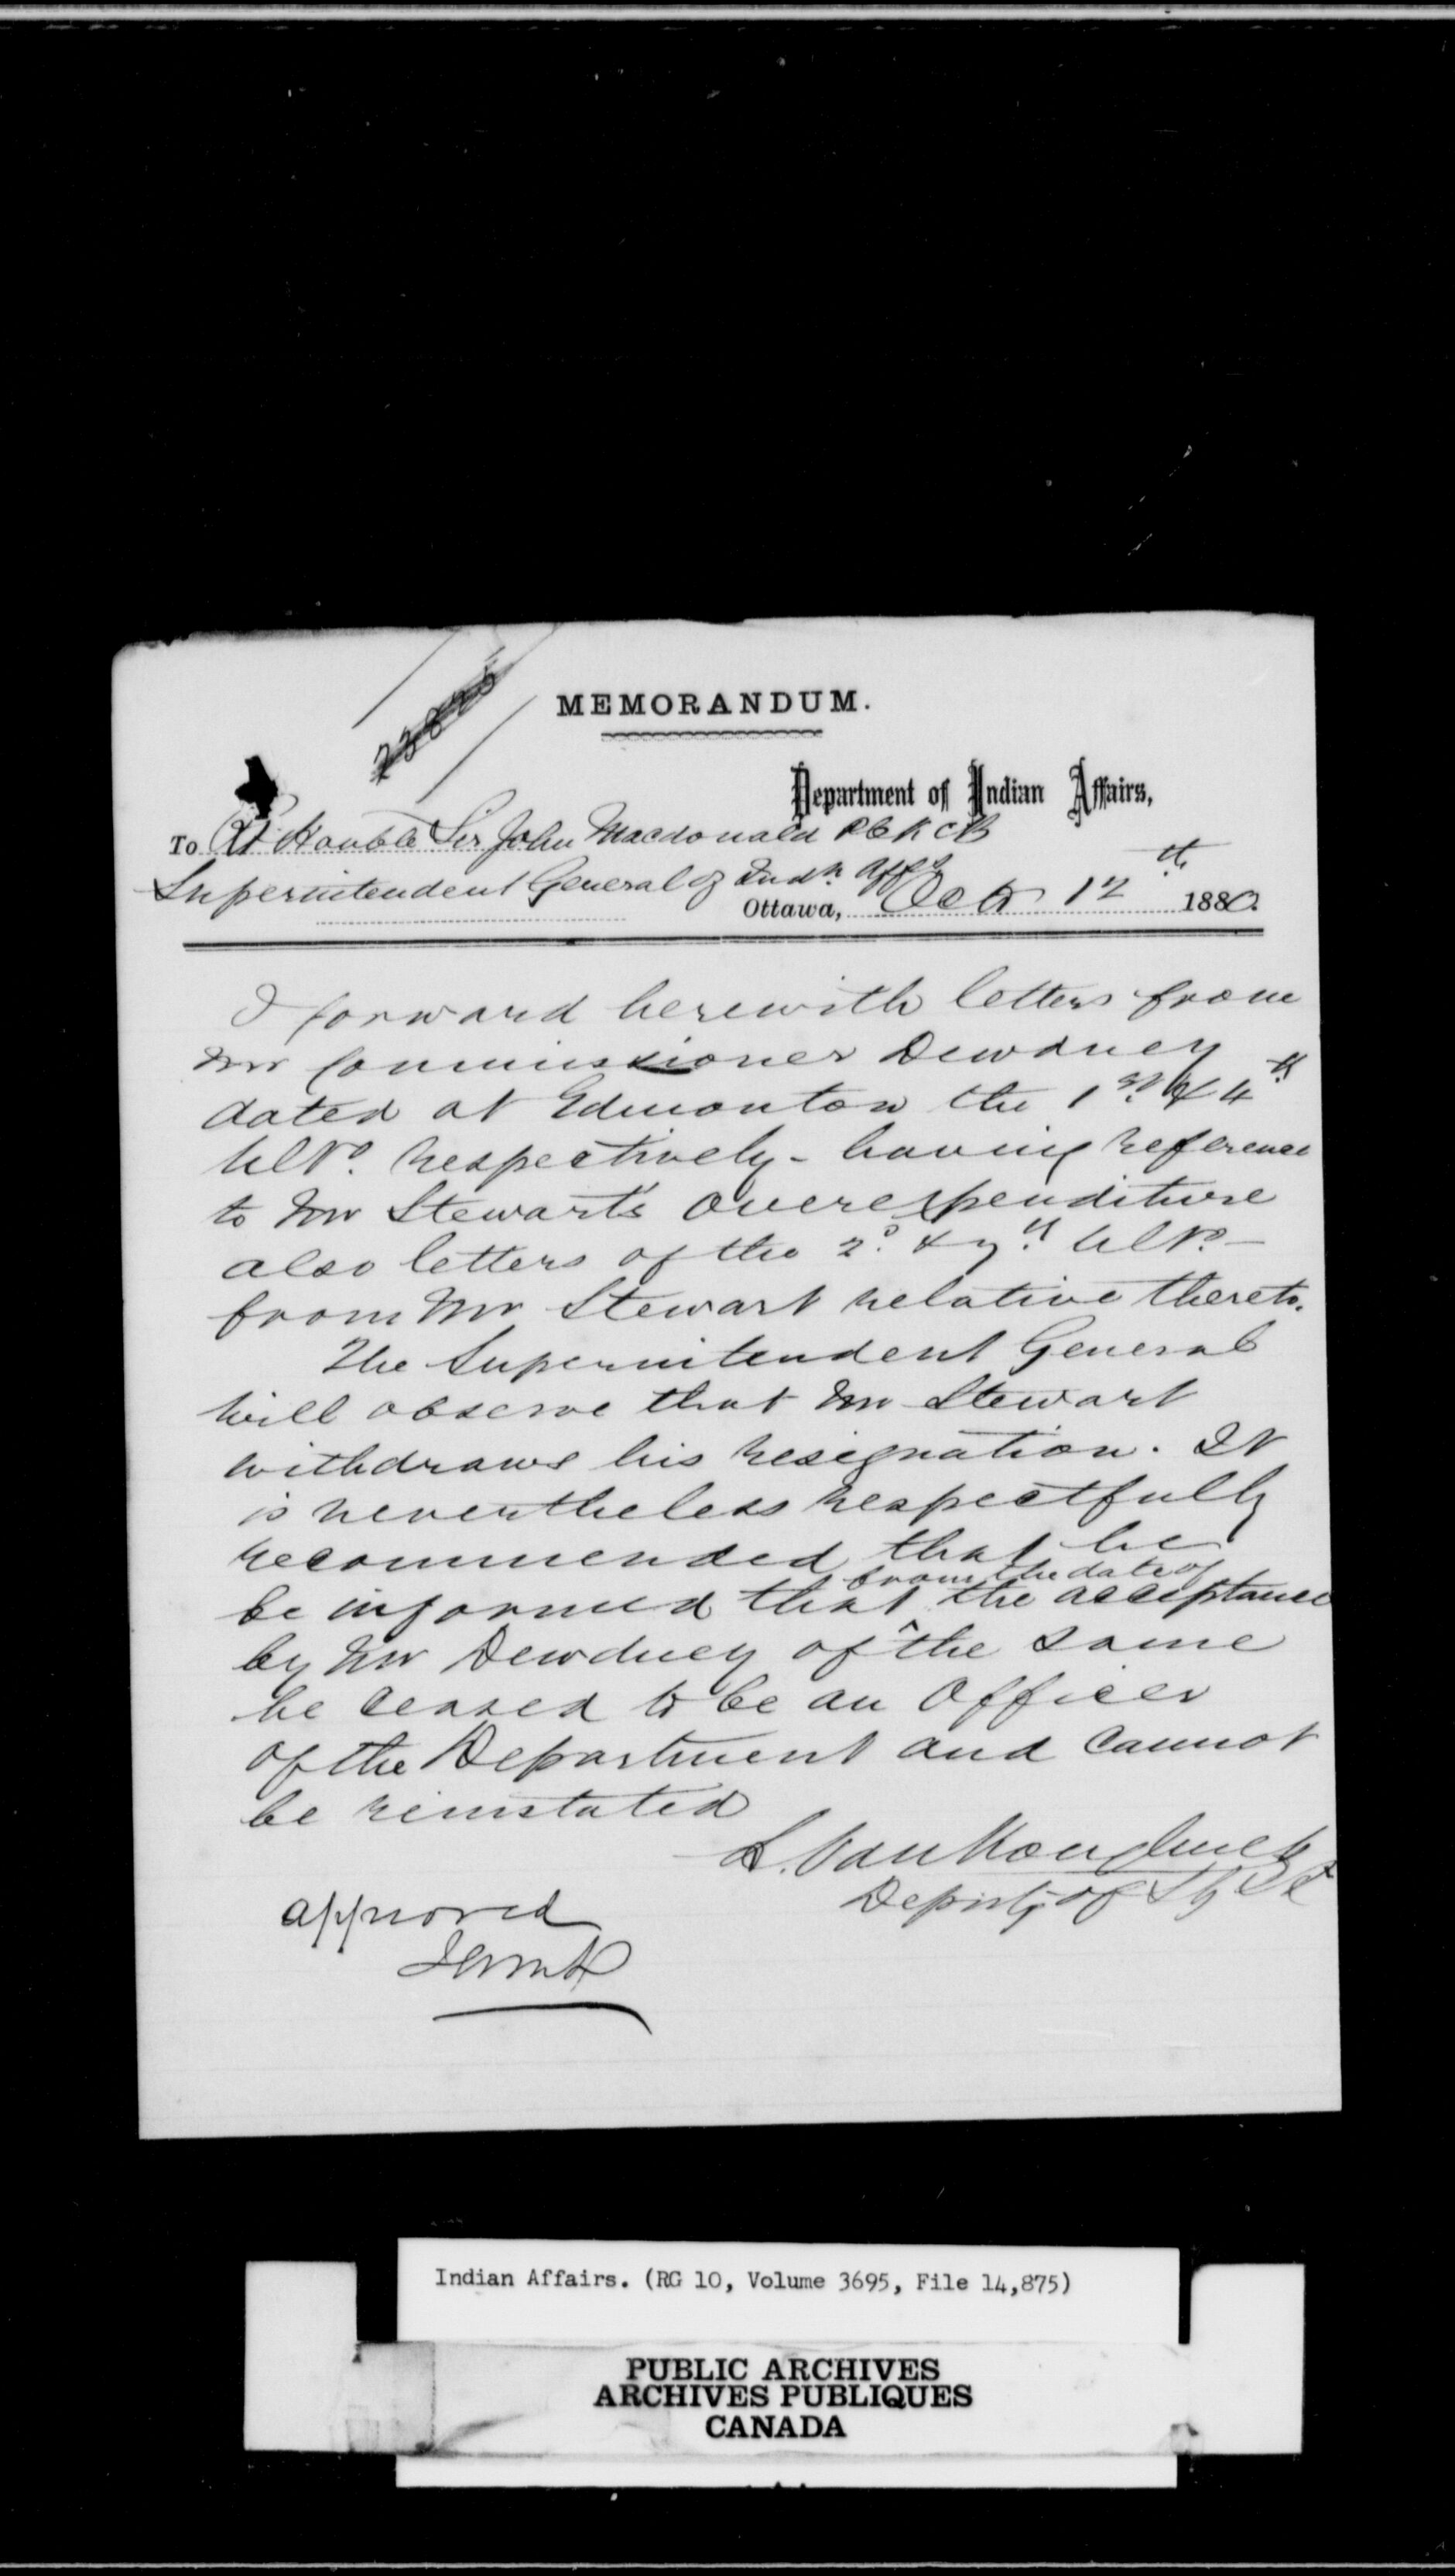 MEMORANDUM.
Department of Indian Affairs,
To Rt Honble Sir John Macdonald P C K C B
Superintendent General of Indn Affrs
Ottawa, Oct 12th 1880.
I forward herewith letters from
Mr Commissioner Dewdney
dated at Edmonton the 1st & 4th
Ulto. respectively - having reference
to Mr Stewart's overexpenditure
also letters of the 2d. & 7th Ulto. -
from Mr Stewart relative thereto.
The Superintendent General
will observe that Mr Stewart
withdraws his resignation. It
is nevertheless respectfully
recommended that he
from the date of
be informed that ^ the acceptance
by Mr Dewdney of the same
he ceased to be an Officer
of the Department and cannot
be reinstated
L. VanKoughnet
Deputy of S G I A
approved
JAMcD
Indian Affairs. (RG 10, Volume 3695, File 14,875)
PUBLIC ARCHIVES
ARCHIVES PUBLIQUES
CANADA